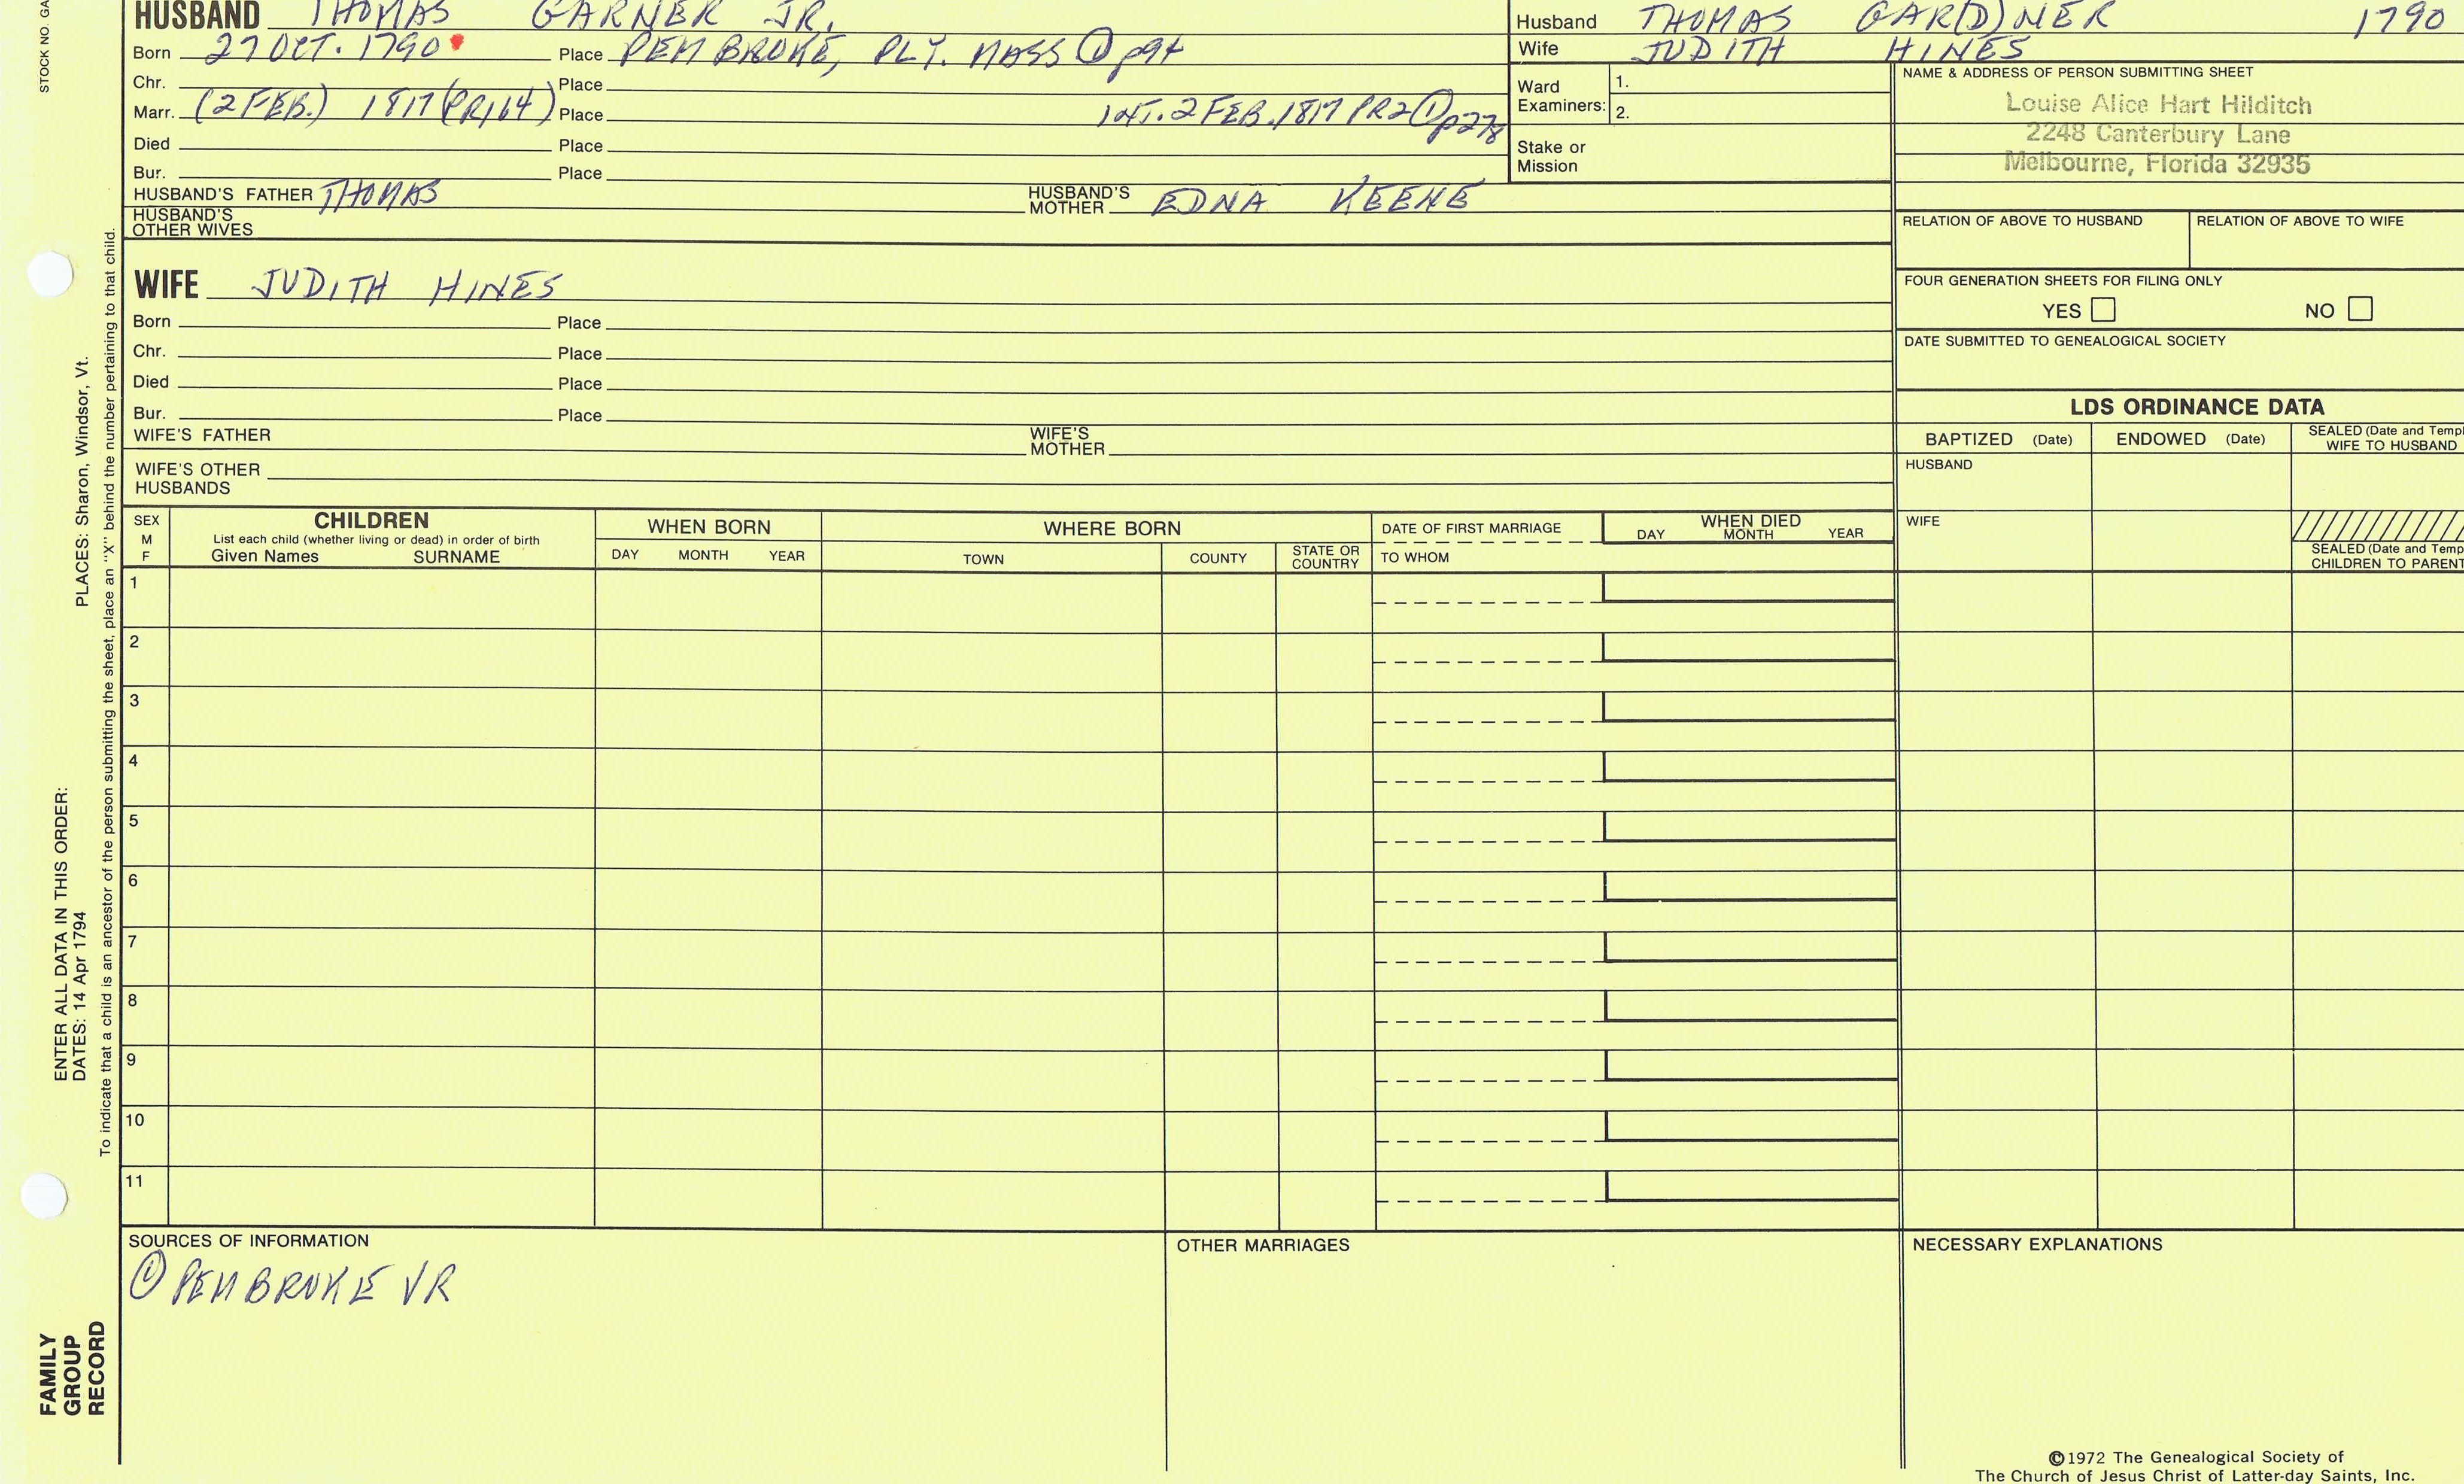 HUSBAND THOMAS GARNER JR.
Born 27 OCT. 1790 Place PEMBROKE, PLY. MASS ① p94
Chr. Place
Marr. (2 FEB.) 1817 (PR164) Place INT. 2 FEB. 1817 PR2 ① p278
Died Place
Bur. Place
HUSBAND'S FATHER THOMAS HUSBAND'S MOTHER EDNA KEENE
HUSBAND'S OTHER WIVES
Husband THOMAS GAR(D)NER 1790
Wife JUDITH HINES
Ward Examiners: 1.
2.
Stake or Mission
NAME & ADDRESS OF PERSON SUBMITTING SHEET
Louise Alice Hart Hilditch
2248 Canterbury Lane
Melbourne, Florida 32935
RELATION OF ABOVE TO HUSBAND RELATION OF ABOVE TO WIFE
FOUR GENERATION SHEETS FOR FILING ONLY
YES NO
DATE SUBMITTED TO GENEALOGICAL SOCIETY
WIFE JUDITH HINES
Born Place
Chr. Place
Died Place
Bur. Place
WIFE'S FATHER WIFE'S MOTHER
WIFE'S OTHER HUSBANDS
LDS ORDINANCE DATA
BAPTIZED (Date) ENDOWED (Date) SEALED (Date and Templ
WIFE TO HUSBAND
HUSBAND
WIFE
SEALED (Date and Temp
CHILDREN TO PARENT
SEX
M
F
CHILDREN
List each child (whether living or dead) in order of birth
Given Names SURNAME
WHEN BORN
DAY MONTH YEAR
WHERE BORN
TOWN COUNTY STATE OR COUNTRY
DATE OF FIRST MARRIAGE
TO WHOM
WHEN DIED
DAY MONTH YEAR
1
2
3
4
5
6
7
8
9
10
11
SOURCES OF INFORMATION
① PEMBROKE VR
OTHER MARRIAGES
NECESSARY EXPLANATIONS
©1972 The Genealogical Society of
The Church of Jesus Christ of Latter-day Saints, Inc.
STOCK NO. GA
ENTER ALL DATA IN THIS ORDER:
DATES: 14 Apr 1794 PLACES: Sharon, Windsor, Vt.
To indicate that a child is an ancestor of the person submitting the sheet, place an "X" behind the number pertaining to that child.
FAMILY
GROUP
RECORD